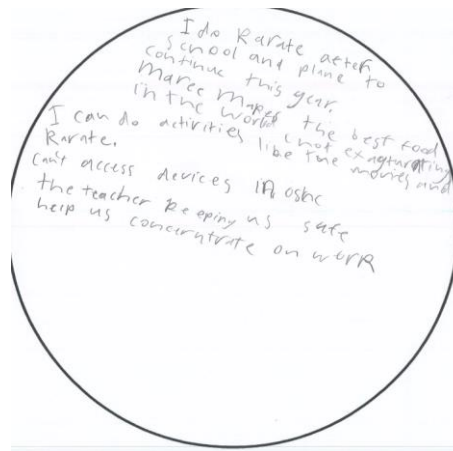 I do Karate after
school and plane to
continue this year.
Maree Mapes the best food
in the world (not exagturating
I can do activities like the movies and
Karate.
can't access devices in oshc
the teacher Keeping us safe
help us concerntrate on work